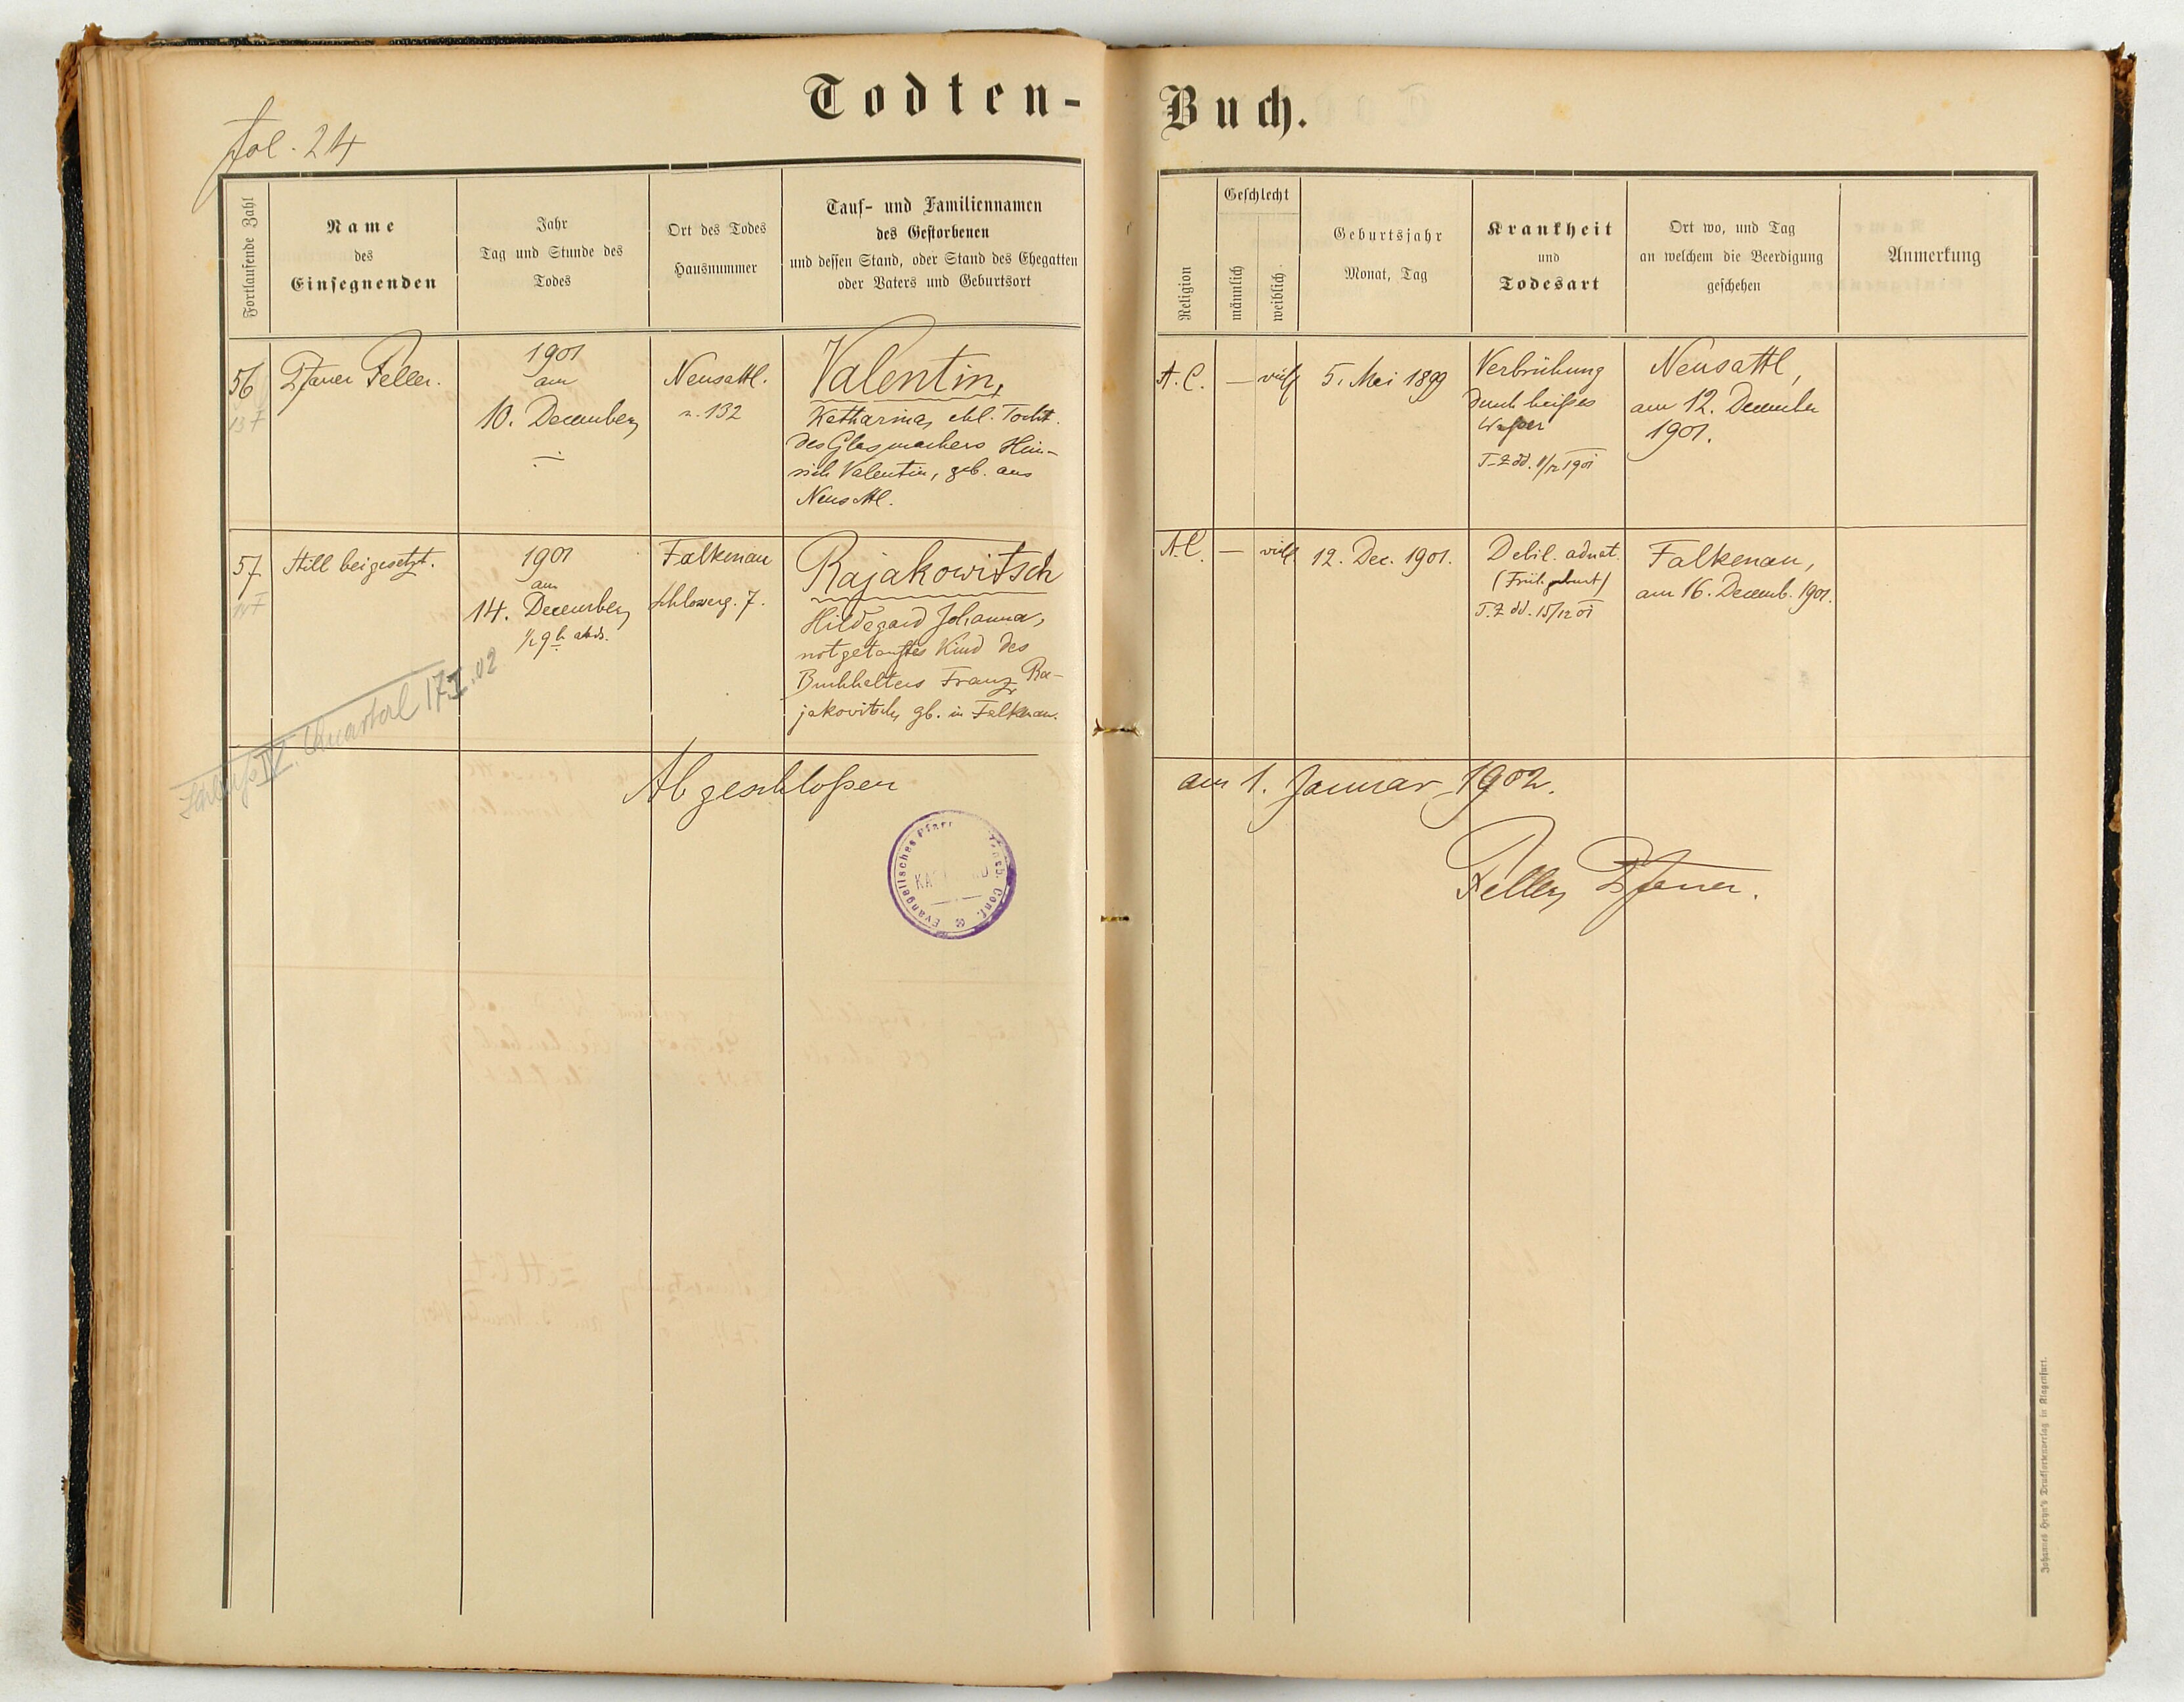 Todten-Buch.
fol. 24
Fortlaufende Zahl
Name
des
Einsegnenden
Jahr
Tag und Stunde des
Todes
Ort des Todes
Hausnummer
Tauf- und Familiennamen
des Gestorbenen
und dessen Stand, oder Stand des Ehegatten
oder Vaters und Geburtsort
Religion
Geschlecht
männlich
weiblich
Geburtsjahr
Monat, Tag
Krankheit
und
Todesart
Ort wo, und Tag
an welchem die Beerdigung
geschehen
Anmerkung
56
13 F
Pfarrer Feller.
1901
am
10. December
Neusattl.
n. 132
Valentin,
Katharina, ehl. Tocht.
des Glasmachers Hein-
rich Valentin, geb. aus
Neusattl.
A. C.
—
weibl.
5. Mai 1899
Verbrühung
durch heißes
Waßer
T-Z dd. 11/12 1901
Neusattl,
am 12. December
1901.
57
14 F
Still beigesetzt.
1901
am
14. December
1/2 9 h abds.
Falkenau
Schlosserg. 7.
Rajakowitsch
Hildegard Johanna,
notgetauftes Kind des
Buchhalters Franz Ra-
jakovitsch, gb. in Falkenau.
A. C.
—
weibl.
12. Dec. 1901.
Debil. adnat.
(Frühgeburt)
T. Z dd. 15/12 01
Falkenau,
am 16. Decemb. 1901.
Schluß IV. Quartal 17.I.02
Abgeschloßen am 1. Januar 1902.
Evangelisches Pfarr
Augsb. Conf.
Feller, Pfarrer.
Johannes Heyn's Drucksortenverlag in Klagenfurt.